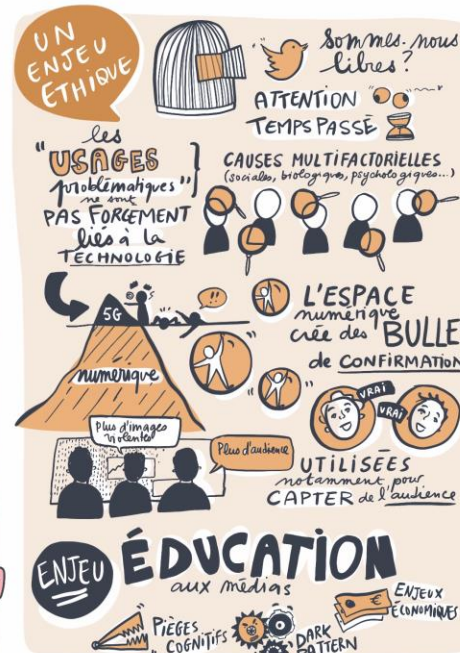 UN
ENJEU
ETHIQUE
Sommes-nous
libres?
ATTENTION
TEMPS PASSÉ
les
"USAGES
problématiques"
ne sont
PAS FORCEMENT
liés à la
TECHNOLOGIE
CAUSES MULTIFACTORIELLES
(sociales, biologiques, psychologiques...)
5G
numérique
!!
L'ESPACE
numérique
crée des BULLE
de CONFIRMATION
VRAI
VRAI
Plus d'images
violentes
Plus d'audience
UTILISÉES
notamment pour
CAPTER de l'audience
ENJEU ÉDUCATION
aux médias
PIÈGES
COGNITIFS
DARK
PATTERN
ENJEUX
ÉCONOMIQUES